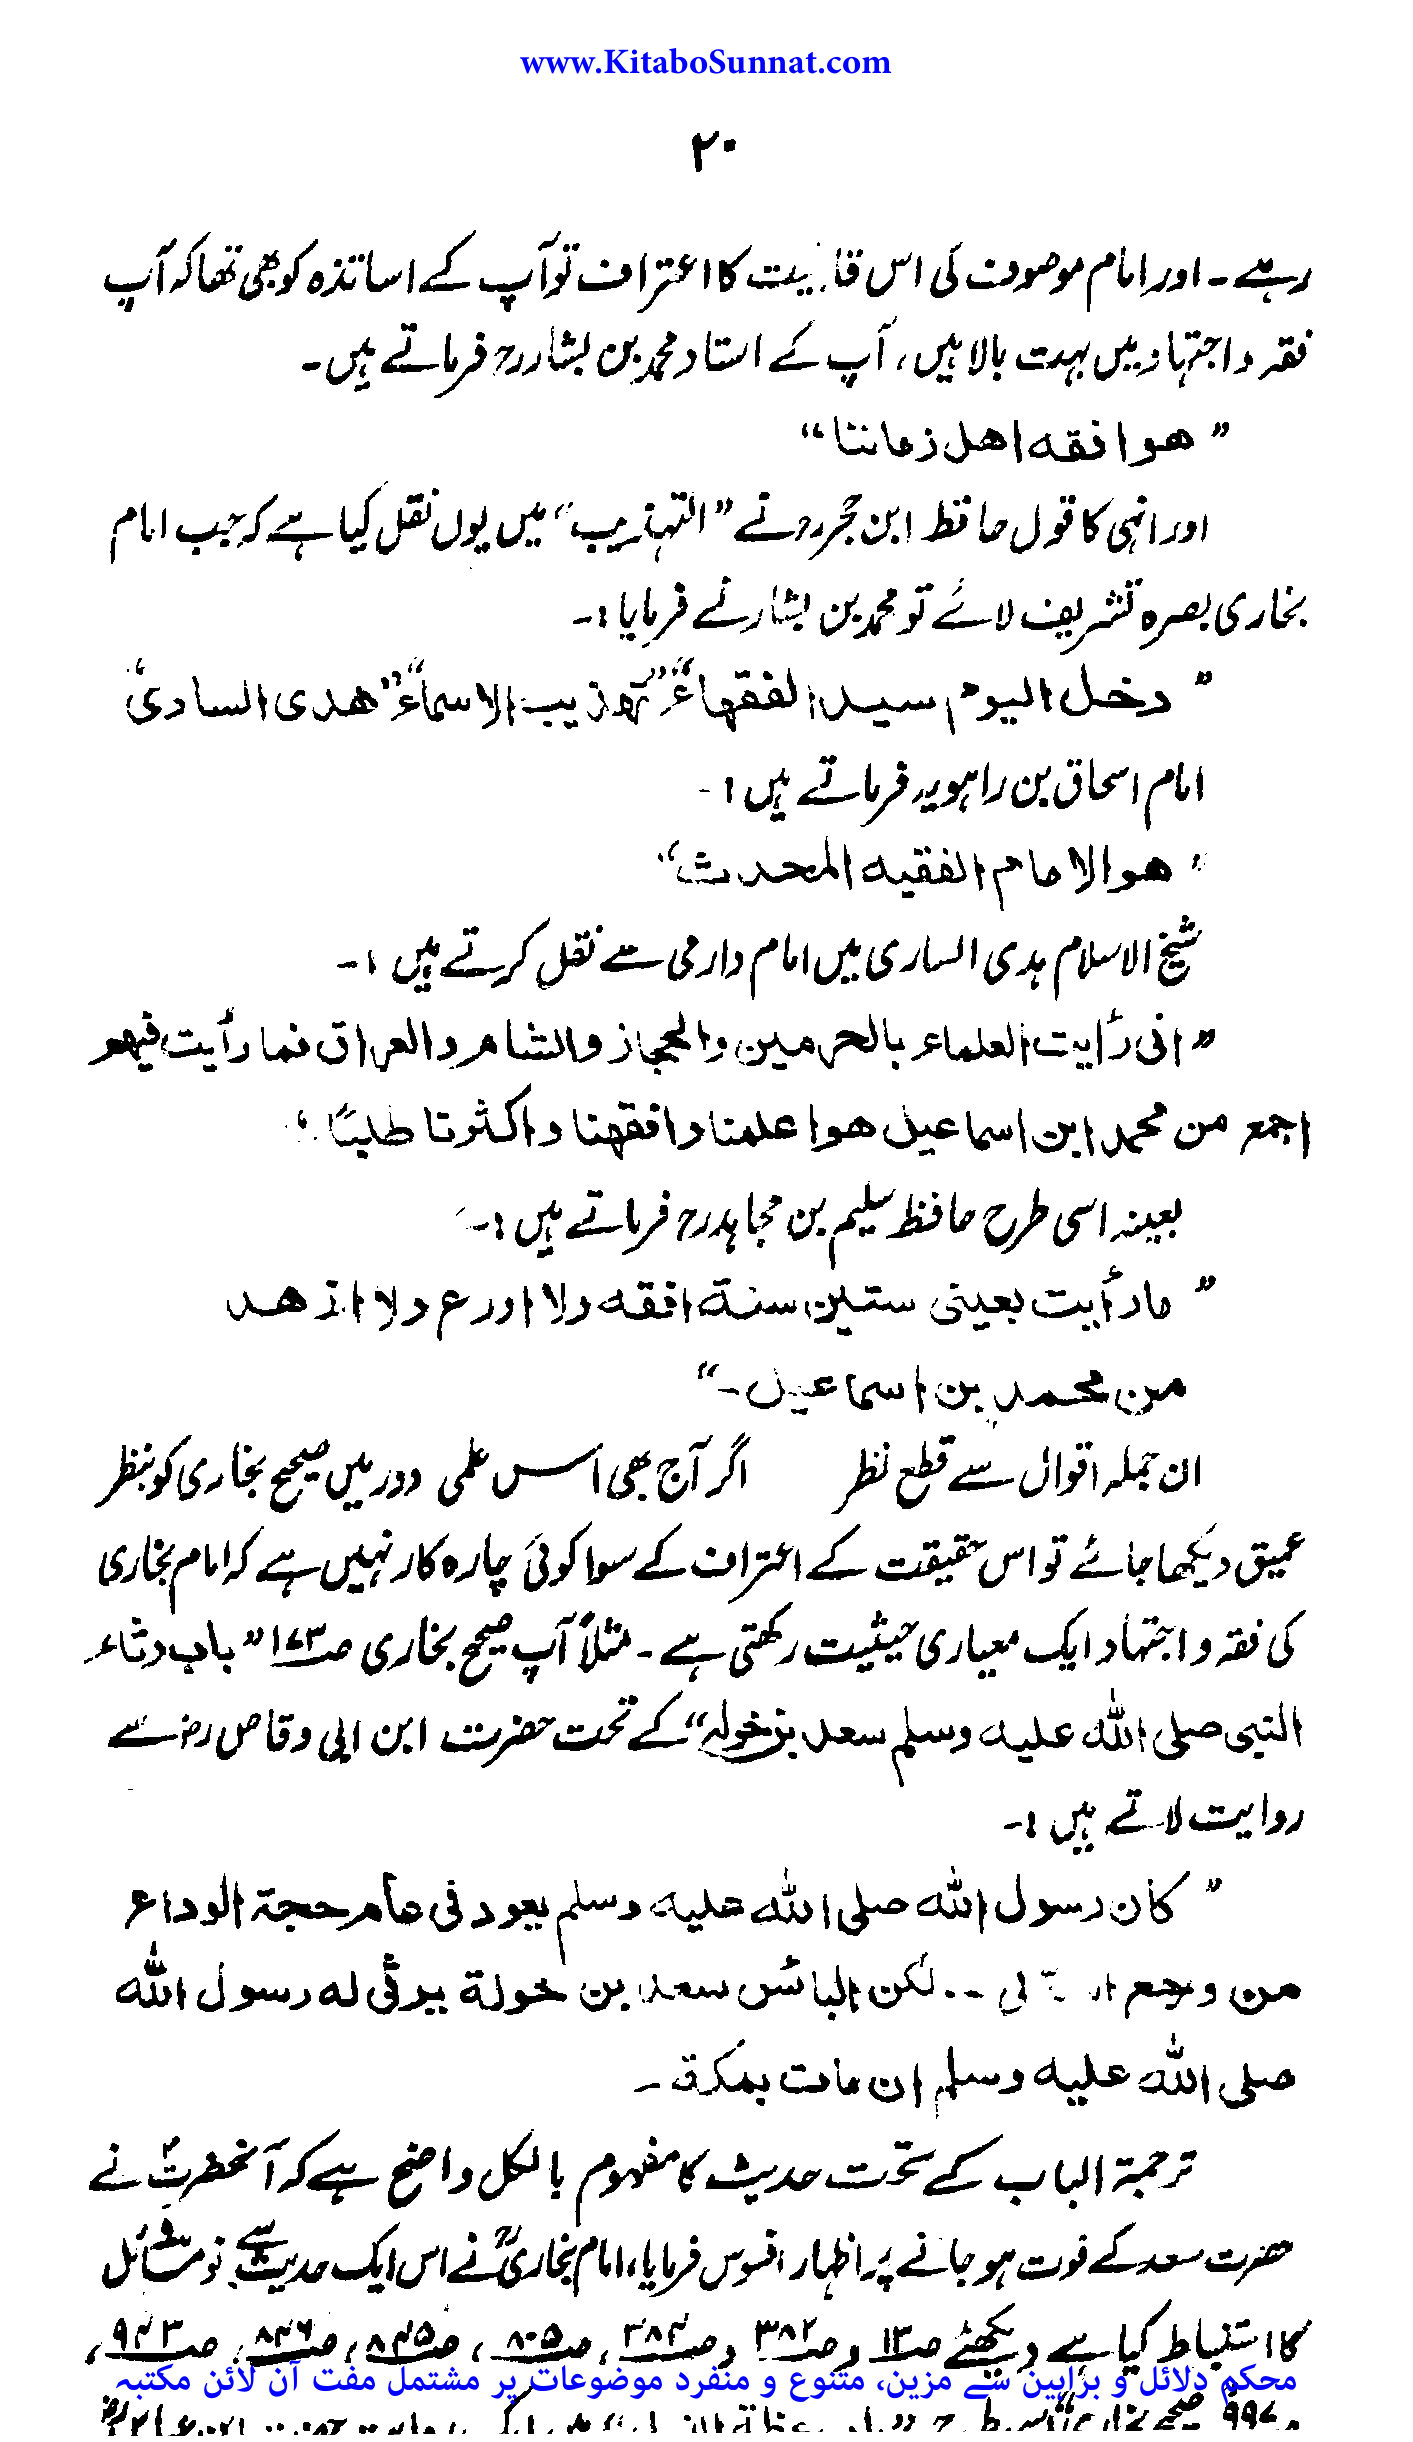 www.KitaboSunnat.com
۲۰
رہے ۔ اور امام موصوف کی اس قابلیت کا اعتراف تو آپ کے اساتذہ کو بھی تھا کہ آپ
فقہ و اجتہاد میں بہت بالا ہیں، آپ کے استاد محمد بن بشار رح فرماتے ہیں۔
” ھو افقہ اھل زماننا “
اور انہی کا قول حافظ ابن حجر رح نے ” التہذیب “ میں یوں نقل کیا ہے کہ جب امام
بخاری بصرہ تشریف لائے تو محمد بن بشار نے فرمایا :۔
” دخل الیوم سید الفقھاء“ ”تھذیب الاسماء“ ”ھدی الساری“
امام اسحاق بن راہویہ فرماتے ہیں :۔
” ھو الامام الفقیہ المحدث “
شیخ الاسلام ہدی الساری میں امام دارمی سے نقل کرتے ہیں :۔
” انی رأیت العلماء بالحرمین والحجاز والشام والعراق فما رأیت فیھم
اجمع من محمد ابن اسماعیل ھو اعلمنا وافقھنا واکثرنا طلبًا “
بعینہ اسی طرح حافظ سلیم بن مجاہد رح فرماتے ہیں :۔
” مارأیت بعینی ستین سنة افقہ ولا اورع ولا ازھد
من محمد بن اسماعیل ۔“
ان جملہ اقوال سے قطع نظر اگر آج بھی اس علمی دور میں صحیح بخاری کو بنظر
عمیق دیکھا جائے تو اس حقیقت کے اعتراف کے سوا کوئی چارہ کار نہیں ہے کہ امام بخاری
کی فقہ و اجتہاد ایک معیاری حیثیت رکھتی ہے ۔ مثلاً آپ صحیح بخاری صـ۱۷۳ ” باب رثاء
النبی صلی اللہ علیہ وسلم سعد بن خولہ “ کے تحت حضرت ابن ابی وقاص رض سے
روایت لاتے ہیں :۔
” کان رسول اللہ صلی اللہ علیہ وسلم یعود فی عام حجة الوداع
من وجع لی ۔۔ لکن البائس سعد بن خولة یرثی لہ رسول اللہ
صلی اللہ علیہ وسلم ان مات بمکة ۔
ترجمة الباب کے تحت حدیث کا مفہوم بالکل واضح ہے کہ آنحضرتؐ نے
حضرت سعد کے فوت ہو جانے پر اظہار افسوس فرمایا، امام بخاریؒ نے اس ایک حدیث سے نو مسائل
کا استنباط کیا ہے دیکھئے صـ۱۳ و صـ۳۸۲ و صـ۳۸۴، صـ۸۰۵، صـ۸۴۵، صـ۸۴۶، صـ۹۴۳،
محکم دلائل و براہین سے مزین، متنوع و منفرد موضوعات پر مشتمل مفت آن لائن مکتبہ
و ۹۹۷ صحیح بخاری